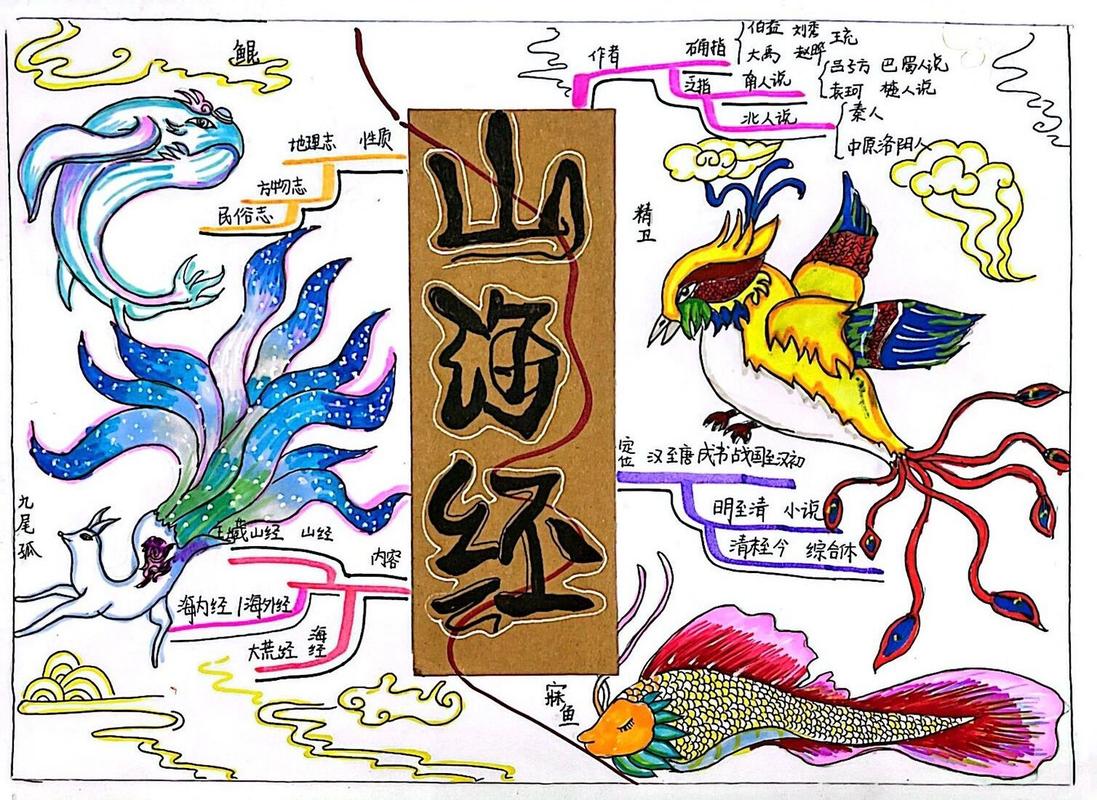 山海经
鲲
性质
地理志
方物志
民俗志
九尾狐
内容
五藏山经 山经
海内经 海外经
大荒经 海经
作者
确指
伯益 刘秀 王充
大禹 赵晔
泛指
南人说
吕子方 巴蜀人说
袁珂 楚人说
北人说
秦人
中原洛阳人
精卫
定位
汉至唐 成书战国至汉初
明至清 小说
清末至今 综合体
鱼